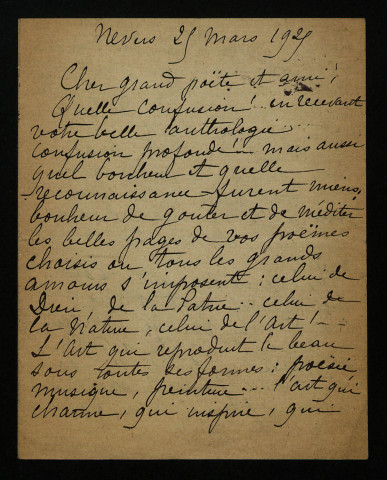 Nevers 25 mars 1925
Cher grand poëte et ami!
Quelle confusion!.. en recevant
votre belle anthologie..
confusion profonde!... mais aussi
quel bonheur et quelle
reconnaissance furent miens,
bonheur de goûter et de méditer
les belles pages de vos poëmes
choisis ou tous les grands
amours s'imposent: celui de
Dieu, de la Patrie.. celui de
la Nature, celui de l'Art!..
L'Art qui reproduit le beau
sous toutes ses formes: poësie
musique, peinture... l'art qui
charme, qui inspire, qui